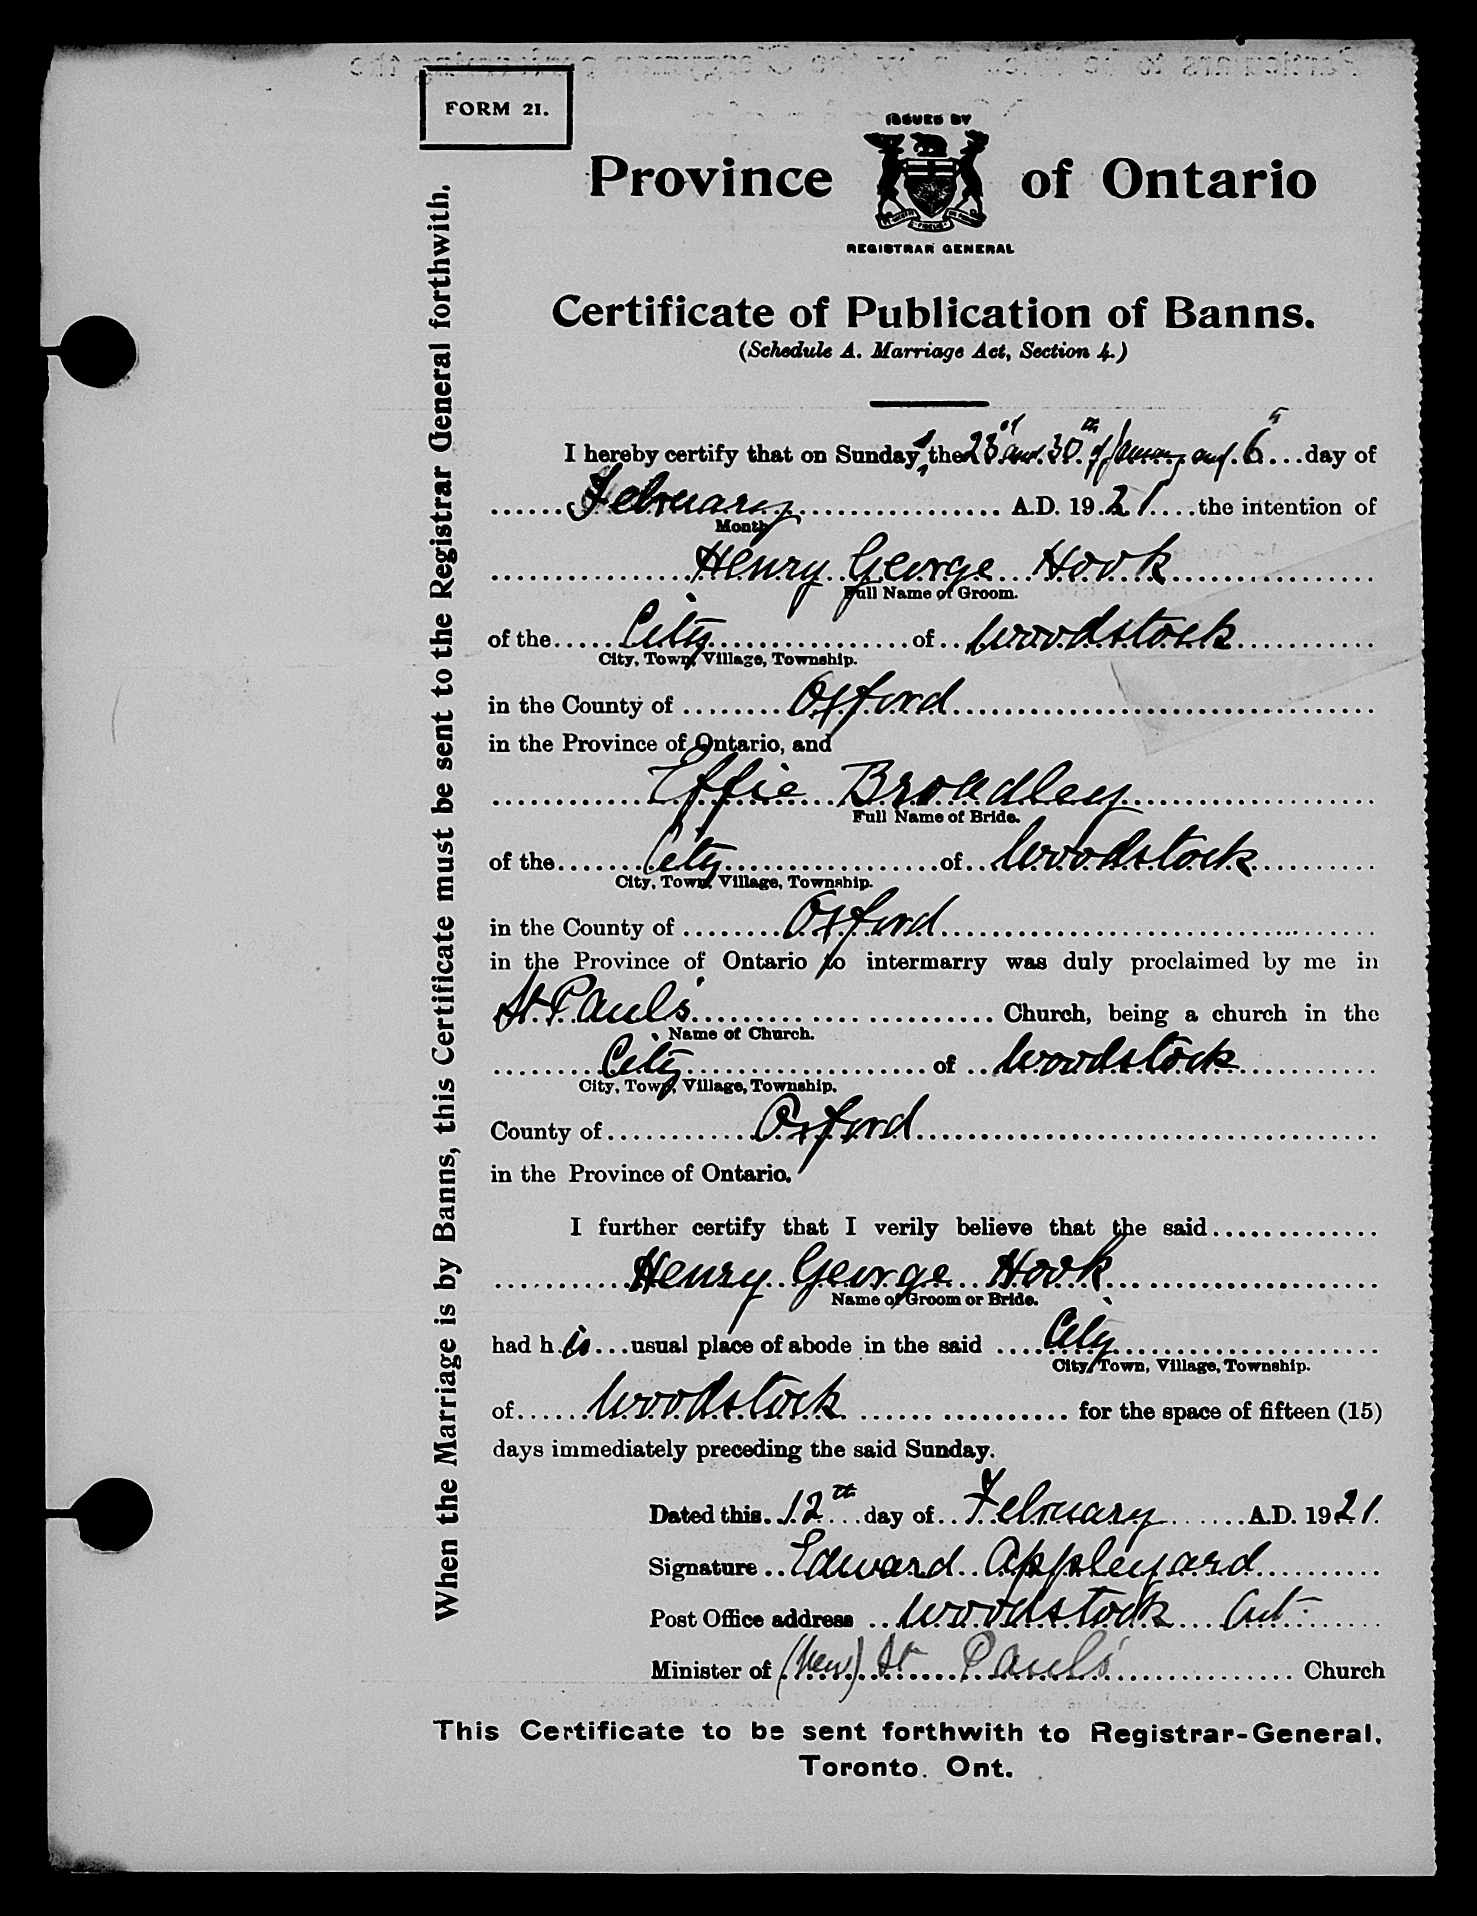 FORM 21.
ISSUED BY
Province of Ontario
REGISTRAR GENERAL
Certificate of Publication of Banns.
(Schedule A. Marriage Act, Section 4.)
I hereby certify that on Sundays, the 23rd and 30th of January and 6th day of
February A.D. 1921 the intention of
Month
Henry George Hook
Full Name of Groom.
of the City of Woodstock
City, Town, Village, Township.
in the County of Oxford
in the Province of Ontario, and
Effie Broadley
Full Name of Bride.
of the City of Woodstock
City, Town, Village, Township.
in the County of Oxford
in the Province of Ontario to intermarry was duly proclaimed by me in
St. Paul's Church, being a church in the
Name of Church.
City of Woodstock
City, Town, Village, Township.
County of Oxford
in the Province of Ontario.
I further certify that I verily believe that the said
Henry George Hook
Name of Groom or Bride.
had his usual place of abode in the said City
City, Town, Village, Township.
of Woodstock for the space of fifteen (15)
days immediately preceding the said Sunday.
Dated this 12th day of February A.D. 1921.
Signature Edward Appleyard
Post Office address Woodstock Ont.
Minister of (New) St Paul's Church
This Certificate to be sent forthwith to Registrar-General,
Toronto. Ont.
When the Marriage is by Banns, this Certificate must be sent to the Registrar General forthwith.